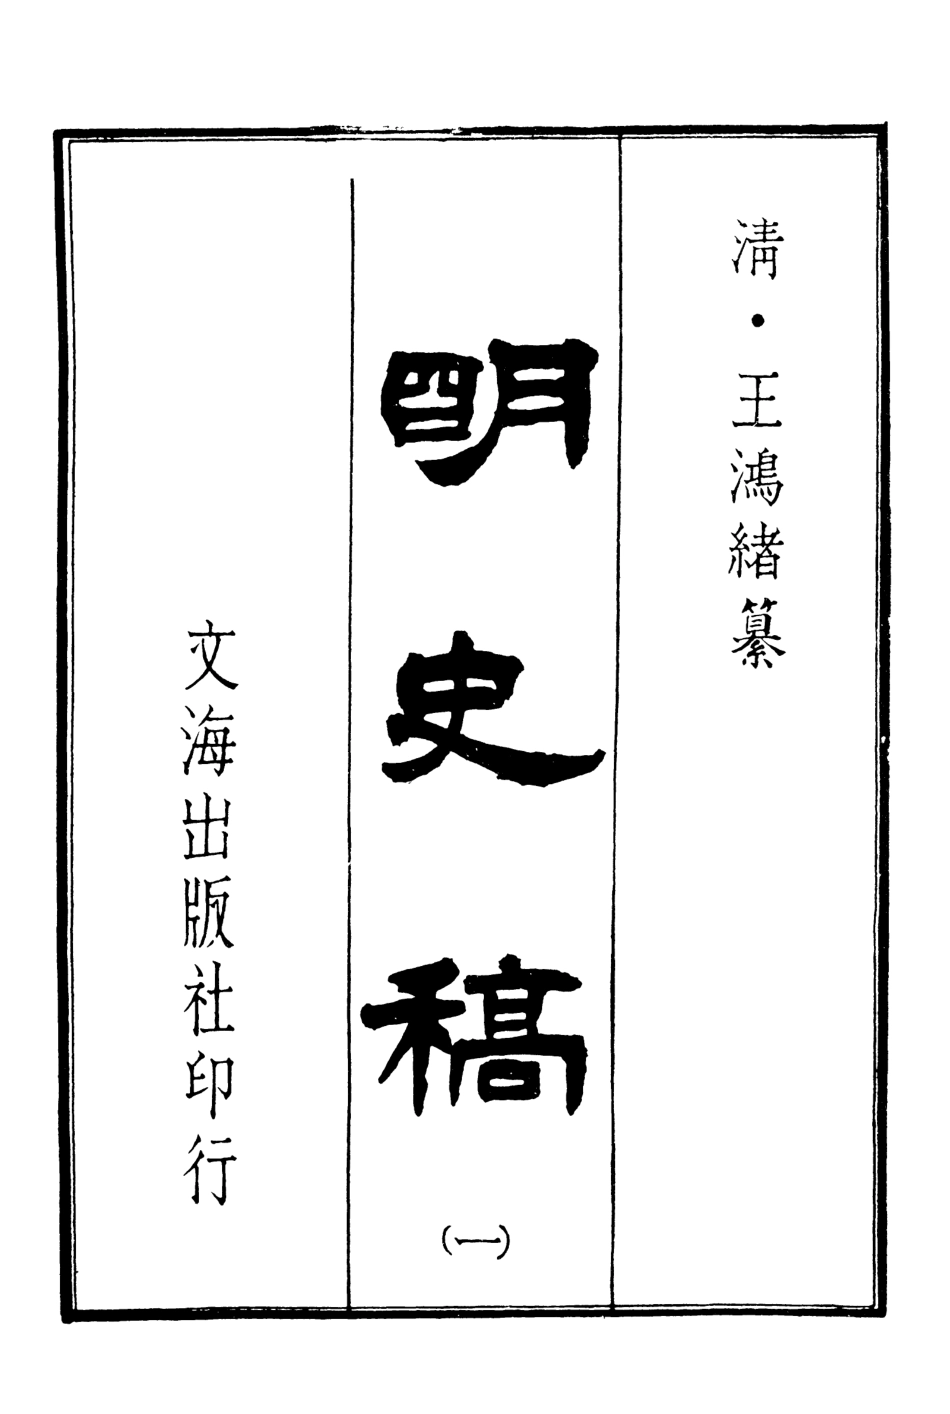 清·王鴻緒纂
明史稿
(一)
文海出版社印行